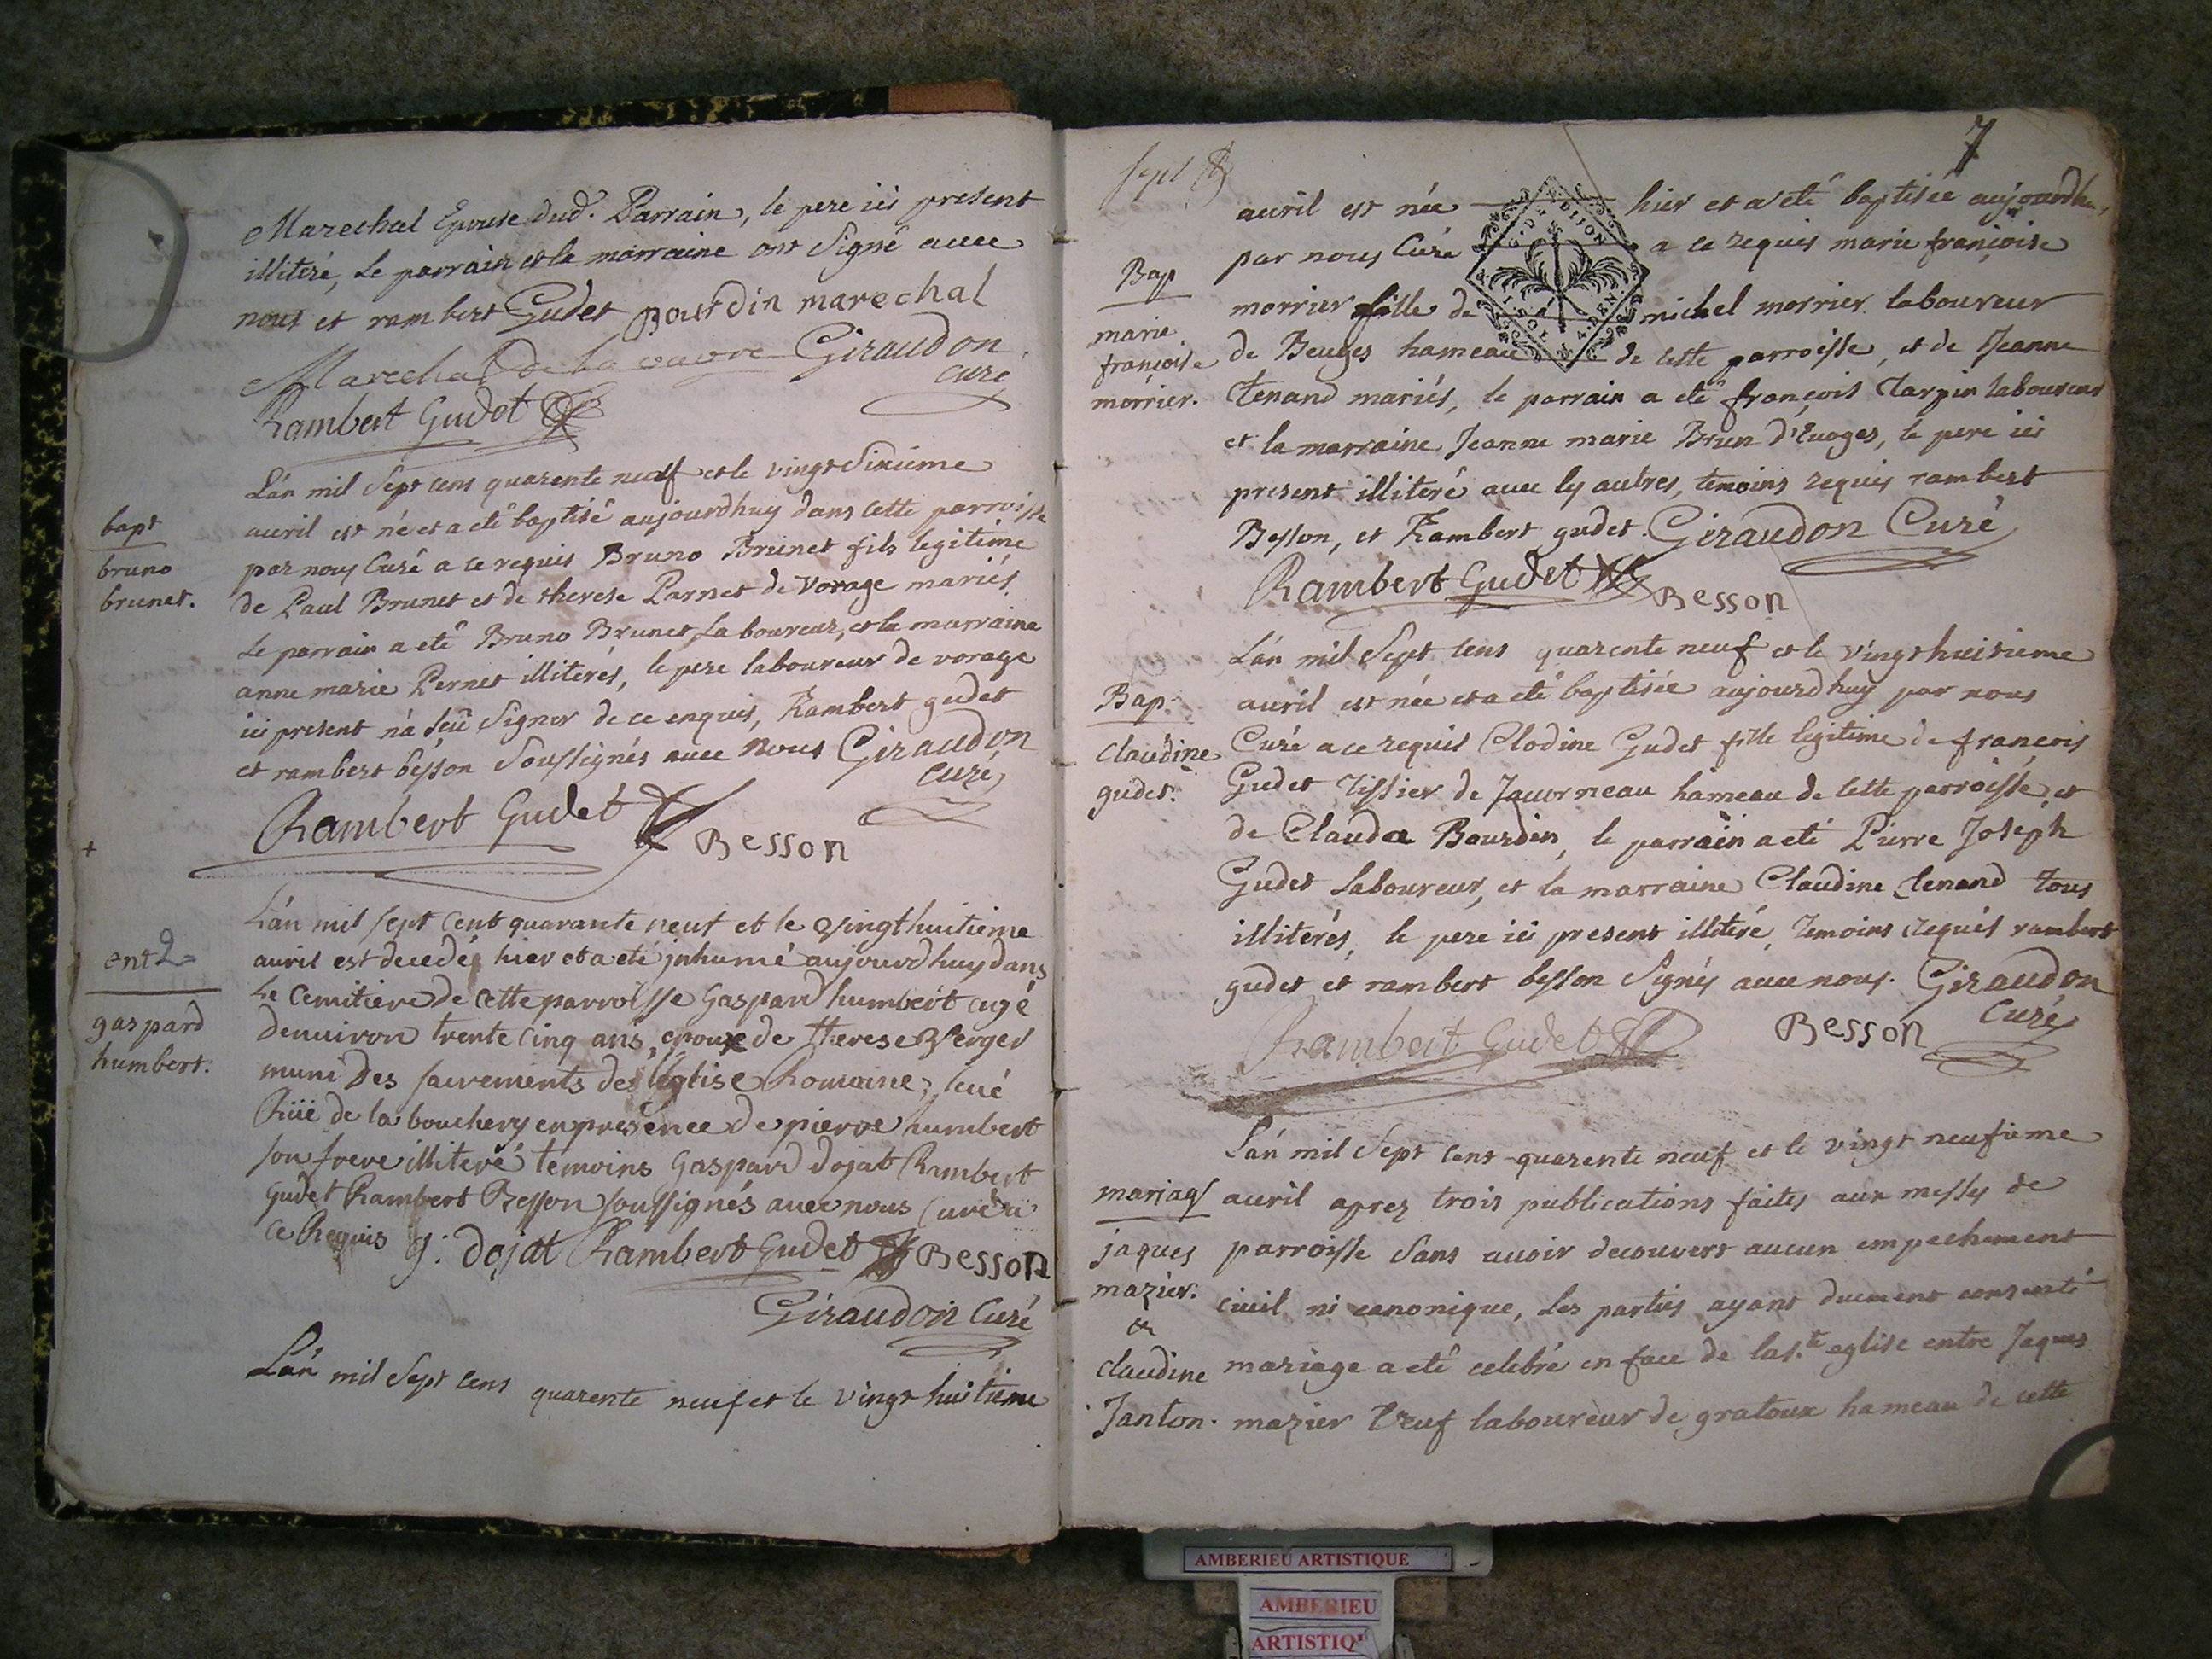 Marechal Epouse dud. Parrain, le pere ici present
illiteré, Le parrain et la marraine ont Signé avec
nous et rambert Gudet Bourdin marechal
Marechal de la Giraudon
curé
Rambert Gudet
bapt
bruno
brunet.
L'an mil Sept cens quarente neuf et le vingt Sixieme
avril est né et a eté baptisé aujourdhuy dans cette parroisse
par nous Curé a ce requis Bruno Brunet fils legitime
de Paul Brunet et de therese Parnet de Vorage mariés
Le parrain a eté Bruno Brunet Laboureur, et la marraine
anne marie Pernet illiterés, le pere laboureur de vorage
ici present n'a seû Signer de ce enquis, Rambert gudet
et rambert besson Soussignés avec Nous Giraudon
curé
Rambert Gudet Besson
ent
gaspard
humbert.
L'an mil sept cent quarante neuf et le vingthuitieme
avril est decedé hier et a eté inhumé aujourdhuy dans
Le Cemitiere de cette parroisse Gaspard humbert agé
denviron trente cinq ans, epoux de Therese Verger
muni Des sacrements de l'eglise Romaine,
Rüe de la bouchery en presence de pierre humbert
son frere illiteré temoins Gaspard dojat Rambert
Gudet Rambert Besson soussignés avec nous Curé a
ce Requis g: dojat Rambert Gudet Besson
Giraudon Curé
L'an mil Sept cens quarente neuf et le vingt huitieme
sept
7
avril est née hier et a eté baptisée aujourdhuy
par nous Curé a ce requis marie françoise
G. D. DIJON
Bap
marie
françoise
morrier.
morrier fille de michel morrier laboureur
de Beuges hameau de cette parroisse, et de Jeanne
tenand mariés, le parrain a eté françois tarpin laboureur
et la marraine Jeanne marie Brun d'Evoges, le pere ici
present illiteré avec les autres, temoins requis rambert
Besson, et Rambert gudet. Giraudon Curé
Rambert Gudet Besson
Bap
Claudine
gudet.
L'an mil Sept cens quarente neuf et le vingt huitieme
avril est née et a eté baptisée aujourdhuy par nous
Curé a ce requis Clodine Gudet fille legitime de françois
Gudet tissier de Javorneau hameau de cette parroisse, et
de Clauda Bourdin, le parrain a eté Pierre Joseph
Gudet Laboureur, et la marraine Claudine tenand tous
illiterés, le pere ici present illiteré, temoins requis rambert
gudet et rambert besson Signés avec nous. Giraudon
Curé
Rambert Gudet Besson
mariage
jaques
mazier.
et
claudine
Janton.
L'an mil Sept cens quarente neuf et le vingt neufieme
avril aprez trois publications faites aux messes de
parroisse Sans avoir decouvert aucun empechement
civil ni canonique, Les parties ayant duement consenti
mariage a eté celebré en face de la s.te eglise entre Jaques
mazier veuf laboureur de gratoux hameau de cette
AMBERIEU ARTISTIQUE
AMBERIEU
ARTISTIQ